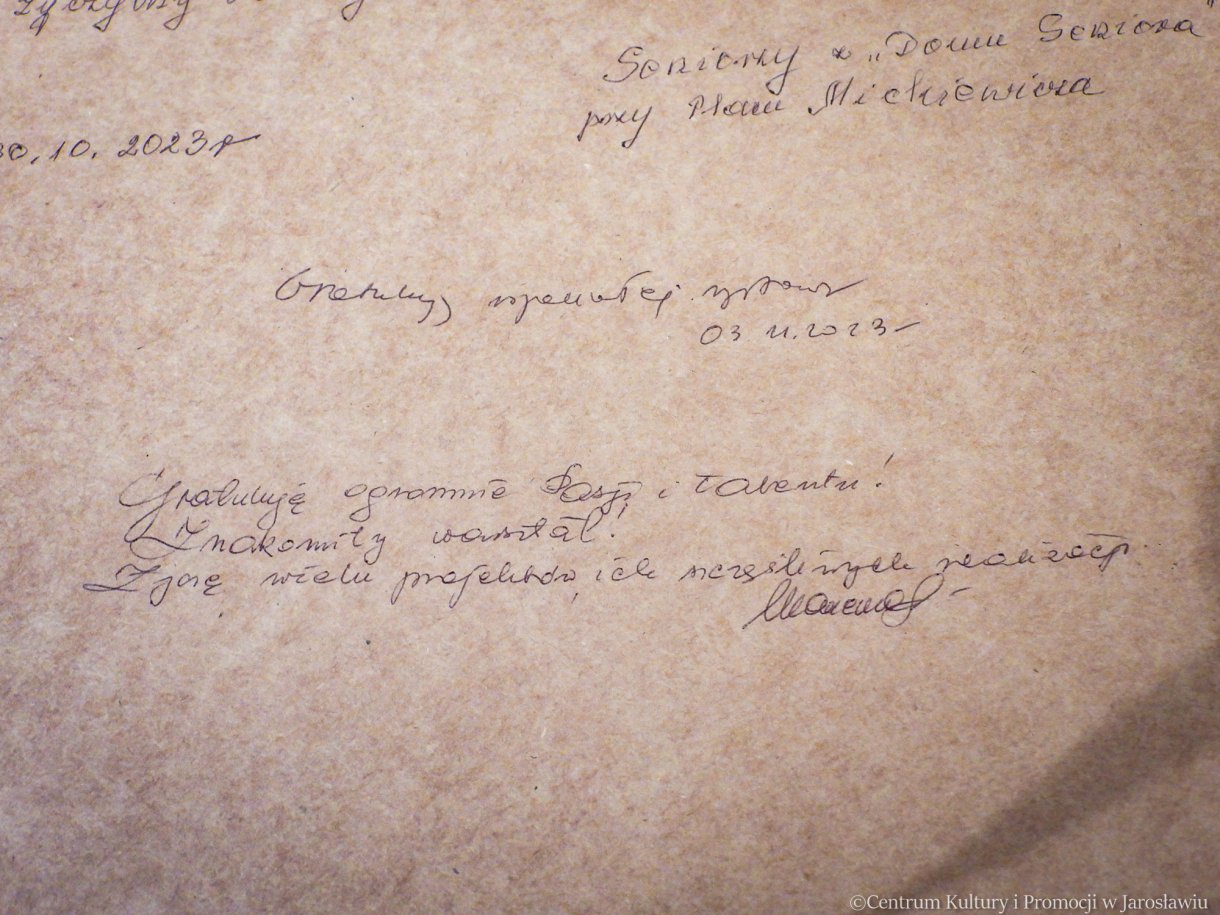 Życzymy
Seniorzy z „Domu Seniora"
przy Placu Mickiewicza
30.10.2023 r
Gratuluję wspaniałej wystawy
03 11.2023
Gratuluję ogromnie Pasji i talentu!
Znakomity warsztat!
Życzę wielu projektów, ich szczęśliwych realizacji.
©Centrum Kultury i Promocji w Jarosławiu